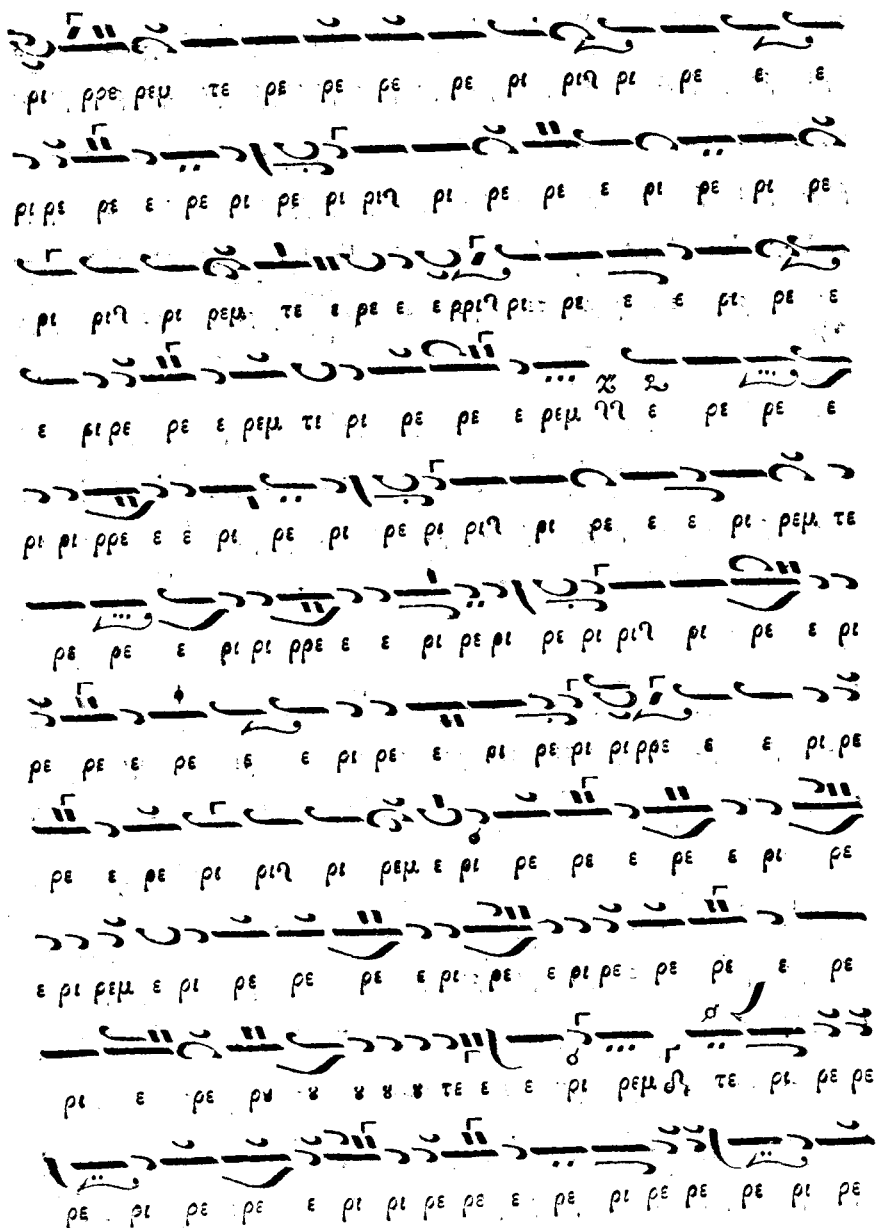 ρι ρρε ρεμ τε ρε ρε ρε ρε ρι ριϡ ρι ρε ε ε
ρι ρε ρε ε ρε ρι ρε ρι ριϡ ρι ρε ρε ε ρι ρε ρι ρε
ρι ριϡ ρι ρεμ τε ε ρε ε ε ρριϡ ρι ρε ε ε ρι ρε ε
ε ρι ρε ρε ε ρεμ τι ρι ρε ρε ε ρεμ ε ρε ρε ε
ρι ρι ρρε ε ε ρι ρε ρι ρε ρι ριϡ ρι ρε ε ε ρι ρεμ τε
ρε ρε ε ρι ρι ρρε ε ε ρι ρε ρι ρε ρι ριϡ ρι ρε ε ρι
ρε ρε ε ρε ε ε ρι ρε ε ρι ρε ρι ρι ρρε ε ε ρι ρε
ρε ε ρε ρι ριϡ ρι ρεμ ε ρι ρε ρε ε ρε ε ρι ρε
ε ρι ρεμ ε ρι ρε ρε ρε ε ρι ρε ε ρι ρε ρε ρε ε ρε
ρι ε ρε ρȣ ȣ ȣ ȣ ȣ τε ε ε ρι ρεμ τε ρι ρε ρε
ρε ρι ρε ρε ε ρι ρι ρε ρε ε ρε ρι ρε ρε ρε ρι ρε